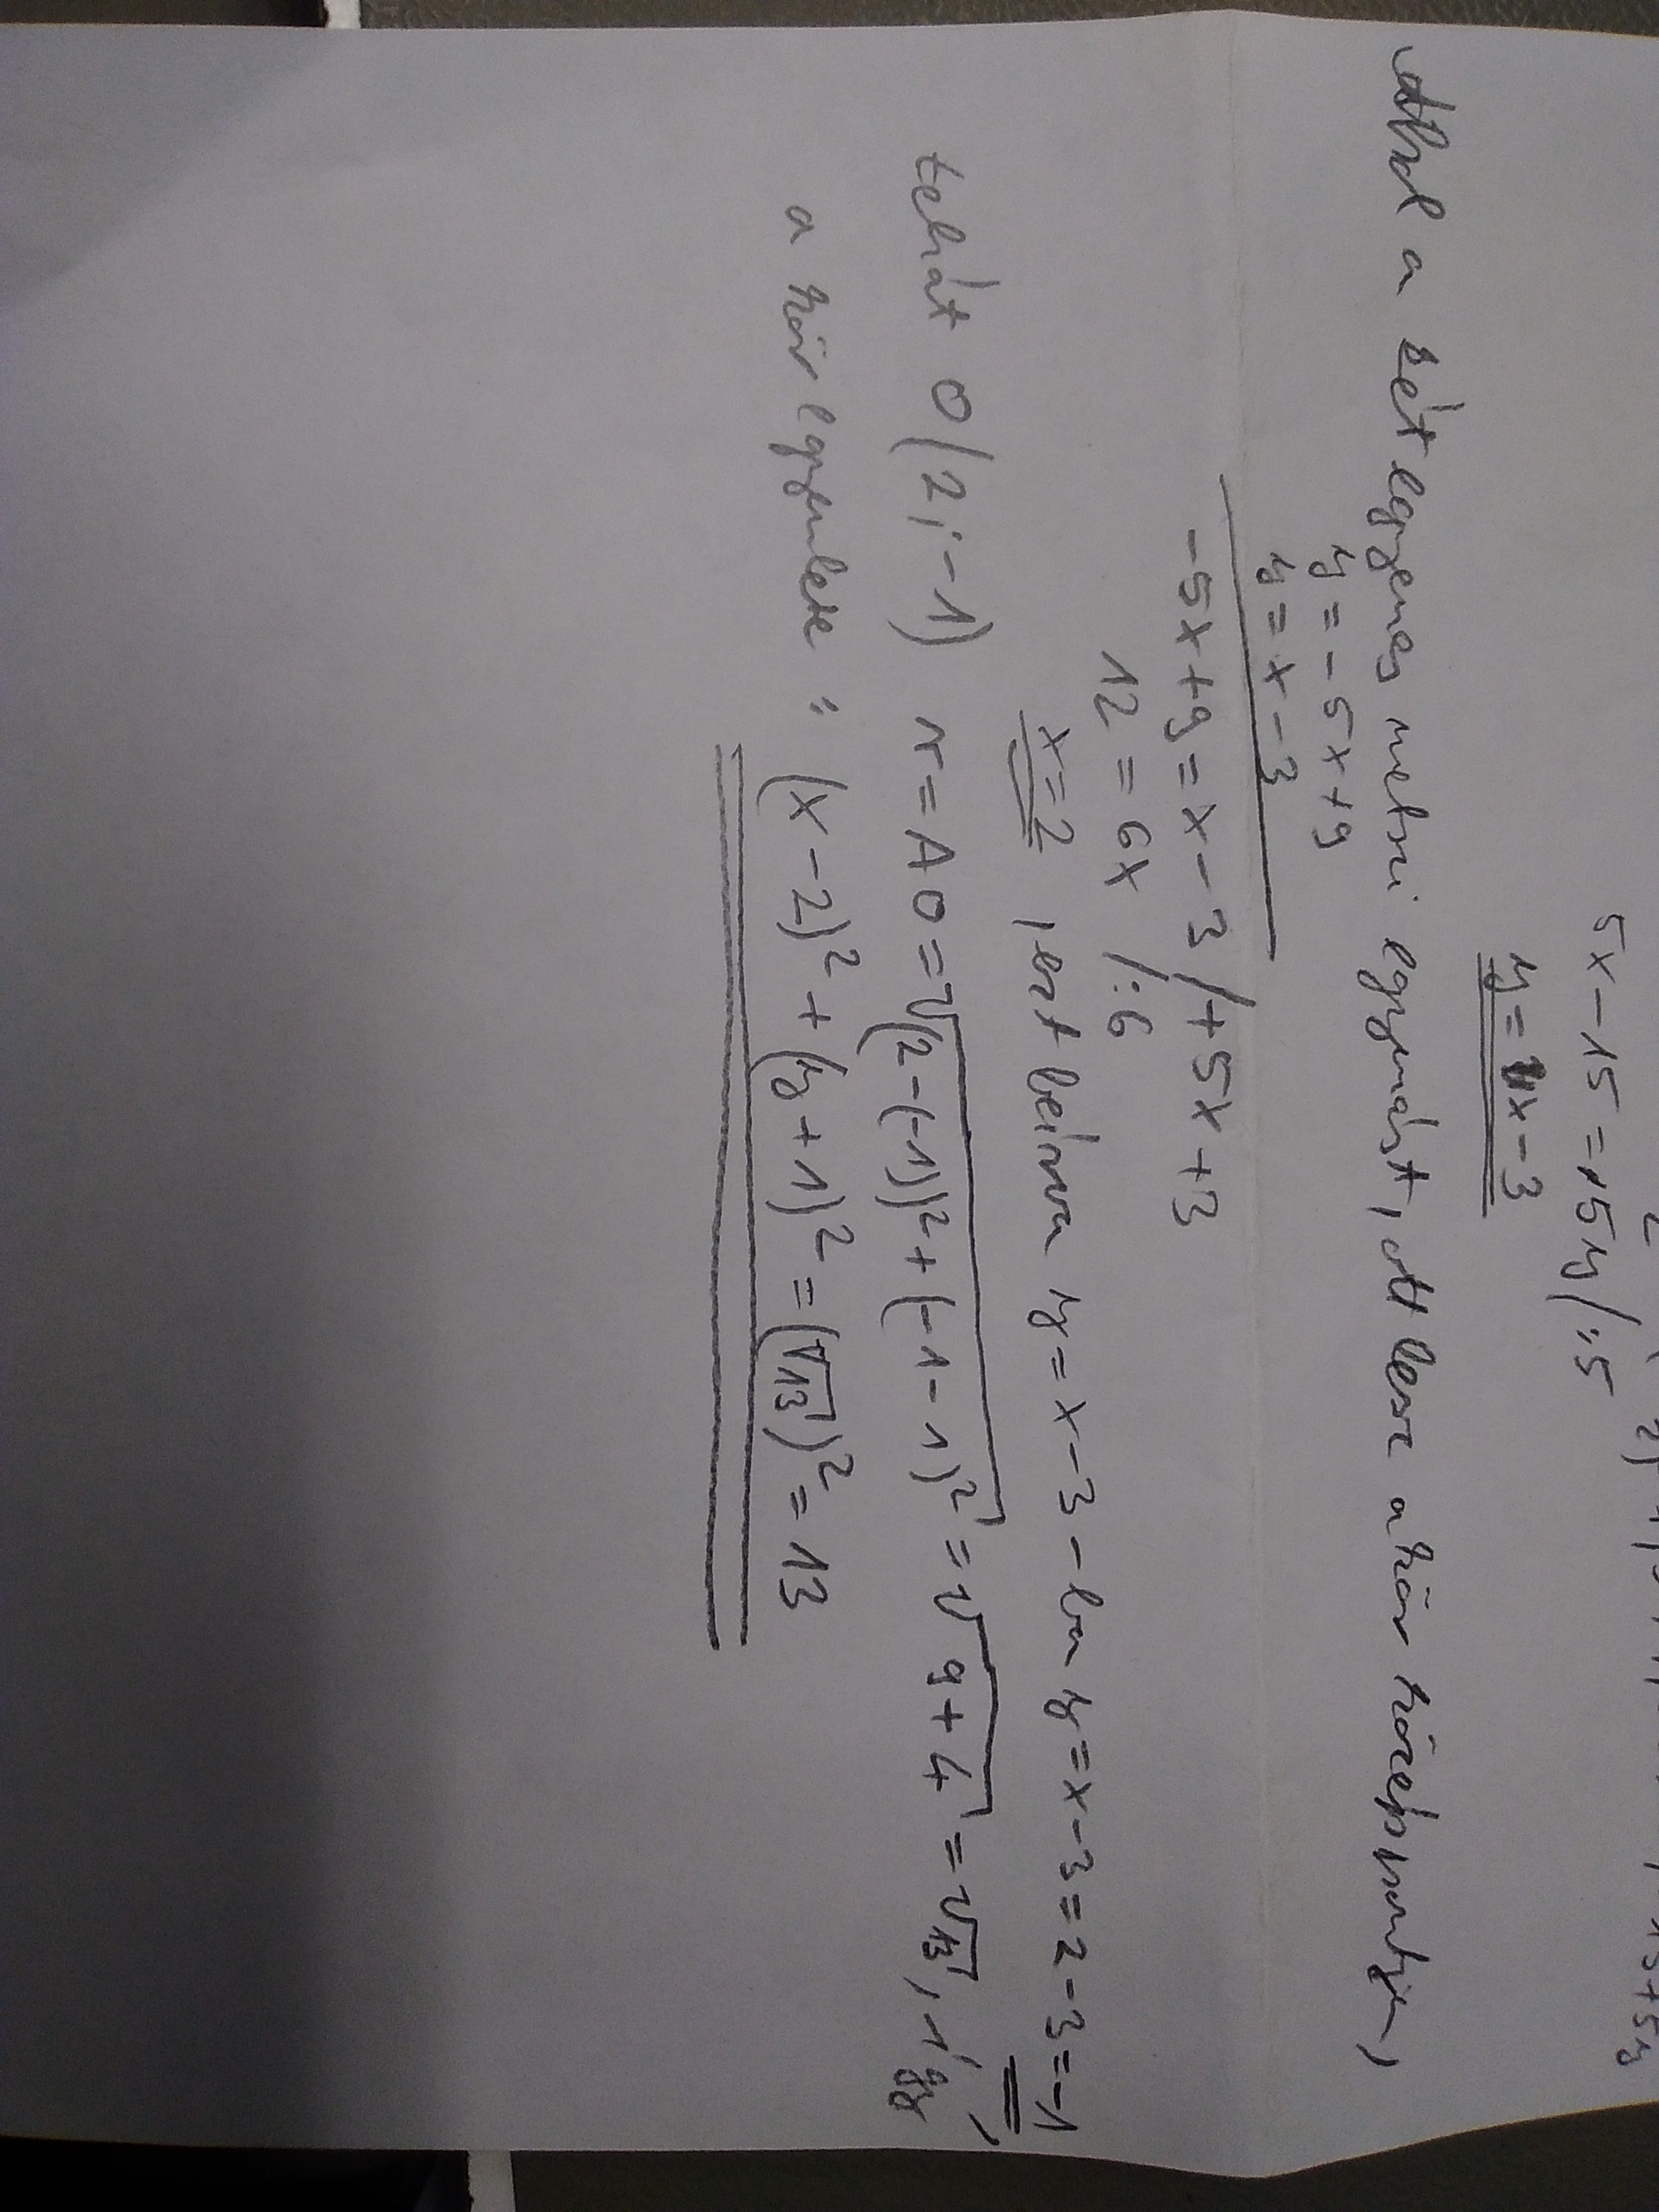 5x-15=15y/:5
y=x-3
Ahol a két egyenes metszi egymást, ott lesz a kör középpontja,
y=-5x+9
y=x-3
-5x+9=x-3/+5x+3
12=6x /:6
x=2, ezt beírva y=x-3-ba y=x-3=2-3=-1,
tehát O(2;-1) r=AO=√(2-(-1))²+(-1-1)²=√9+4=√13, így
a kör egyenlete: (x-2)²+(y+1)²=(√13)²=13